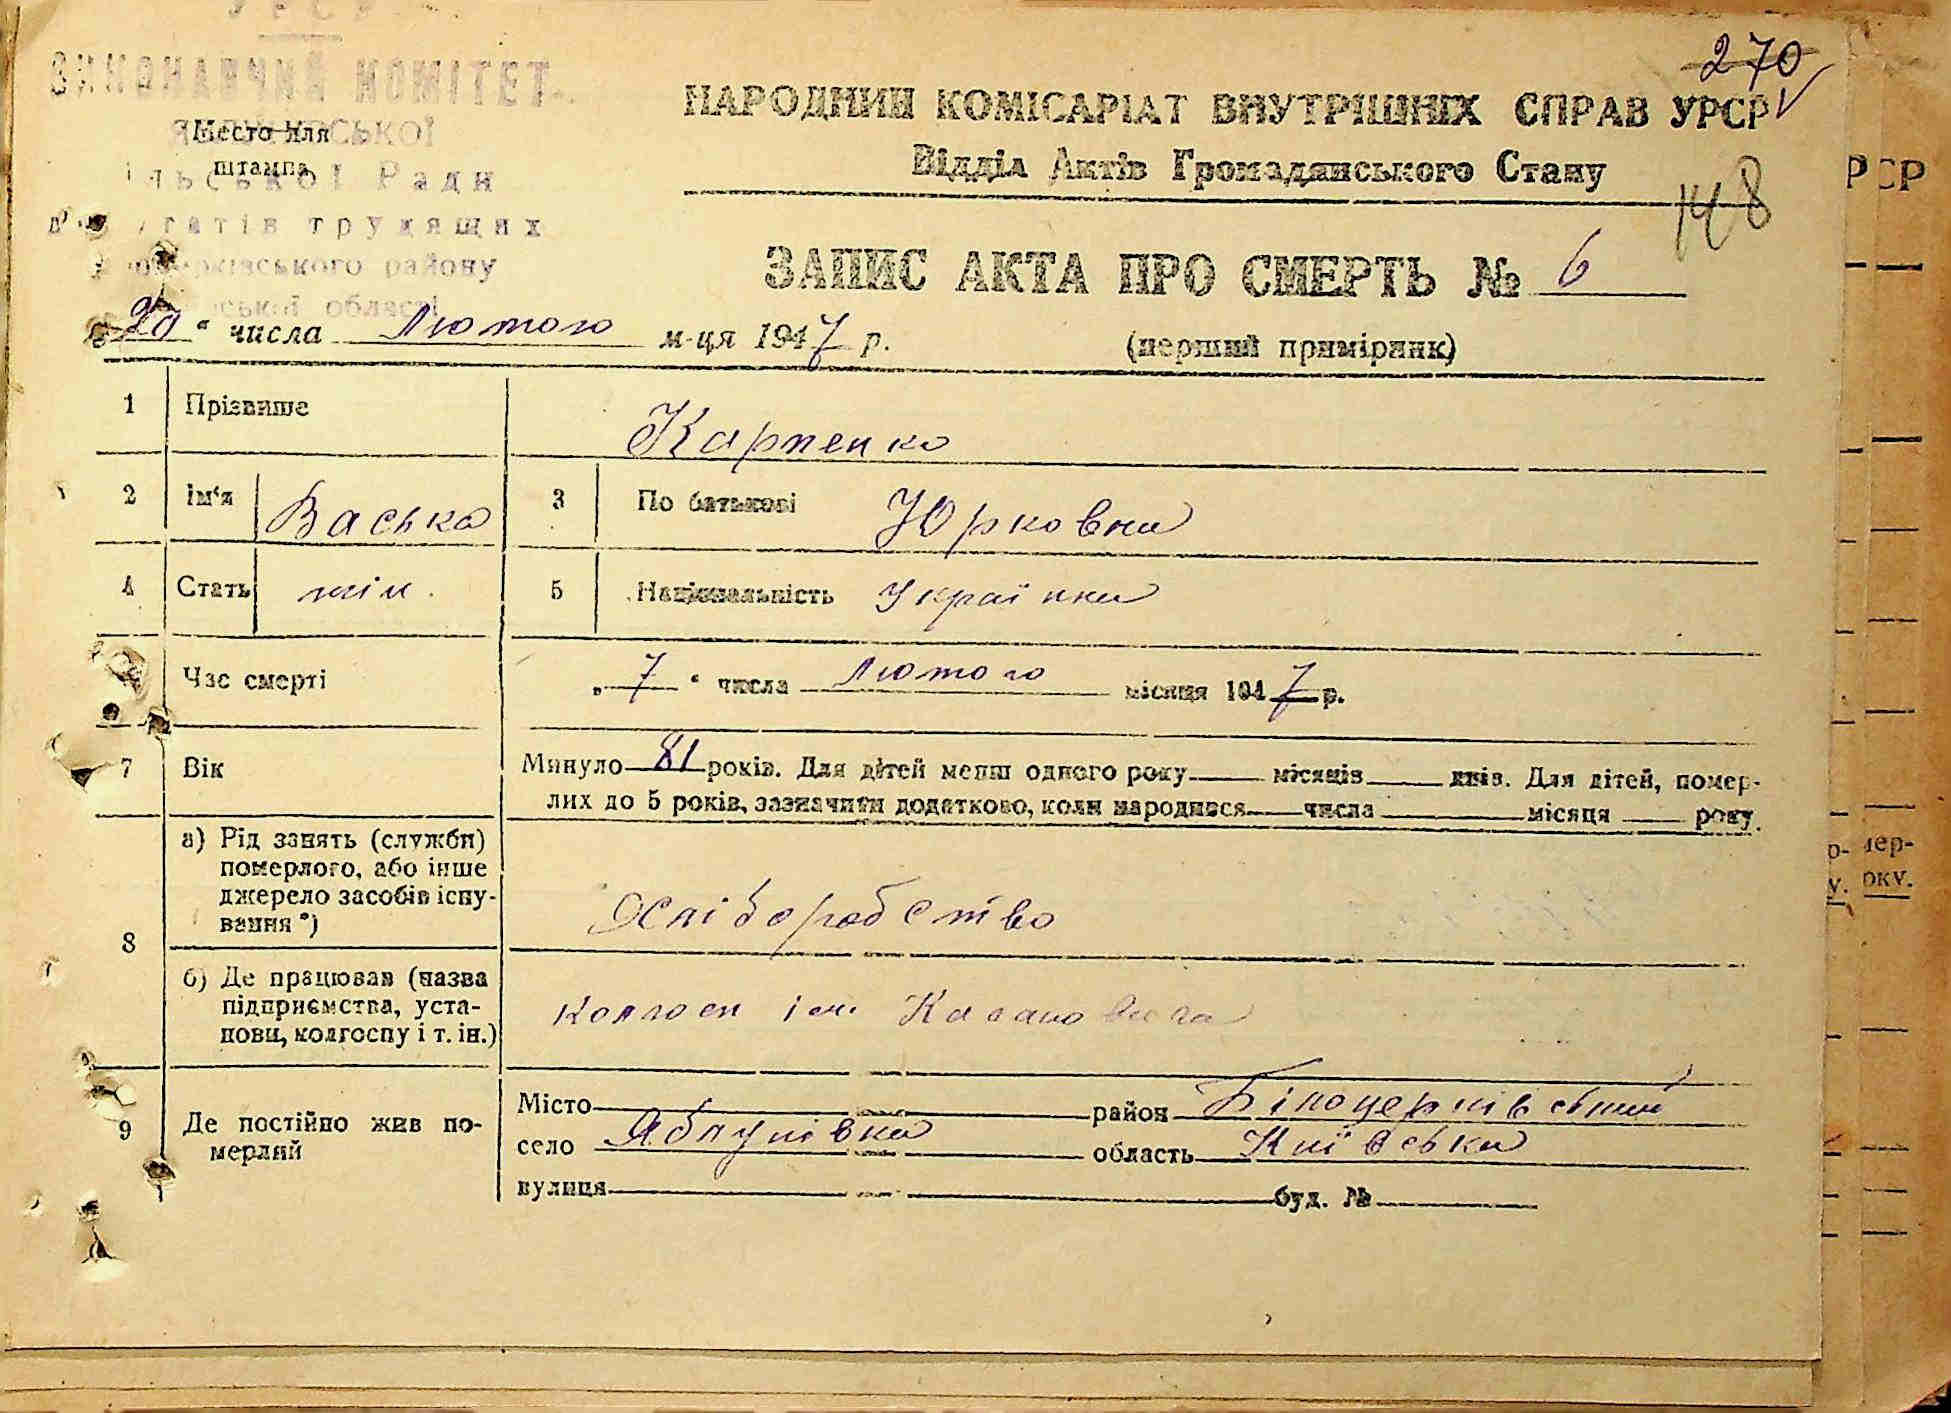 УРСР
ВИКОНАВЧИЙ КОМІТЕТ
Место для
штампа
Ради
трудящих
району
області
270
НАРОДНИЙ КОМІСАРІАТ ВНУТРІШНІХ СПРАВ УРСР
Відділ Актів Громадянського Стану
148
ЗАПИС АКТА ПРО СМЕРТЬ № 6
числа Лютого м-ця 1947 р.
(перший примірник)
1 Прізвище Карпенко
2 Ім'я Васька 3 По батькові Юрковна
4 Стать жін. 5 Національність Українка
Час смерті „7“ числа Лютого місяця 1947 р.
7 Вік Минуло 81 років. Для дітей менш одного року місяців днів. Для дітей, помер-
лих до 5 років, зазначити додатково, коли народився числа місяця року.
8 а) Рід занять (служби)
померлого, або інше
джерело засобів існу-
вання *)
Хліборобство
б) Де працював (назва
підприємства, уста-
нови, колгоспу і т. ін.)
колгосп ім. Кагановича
9 Де постійно жив по-
мерлий
Місто район Білоцерківський
село Яблунівка область Київська
вулиця буд. №